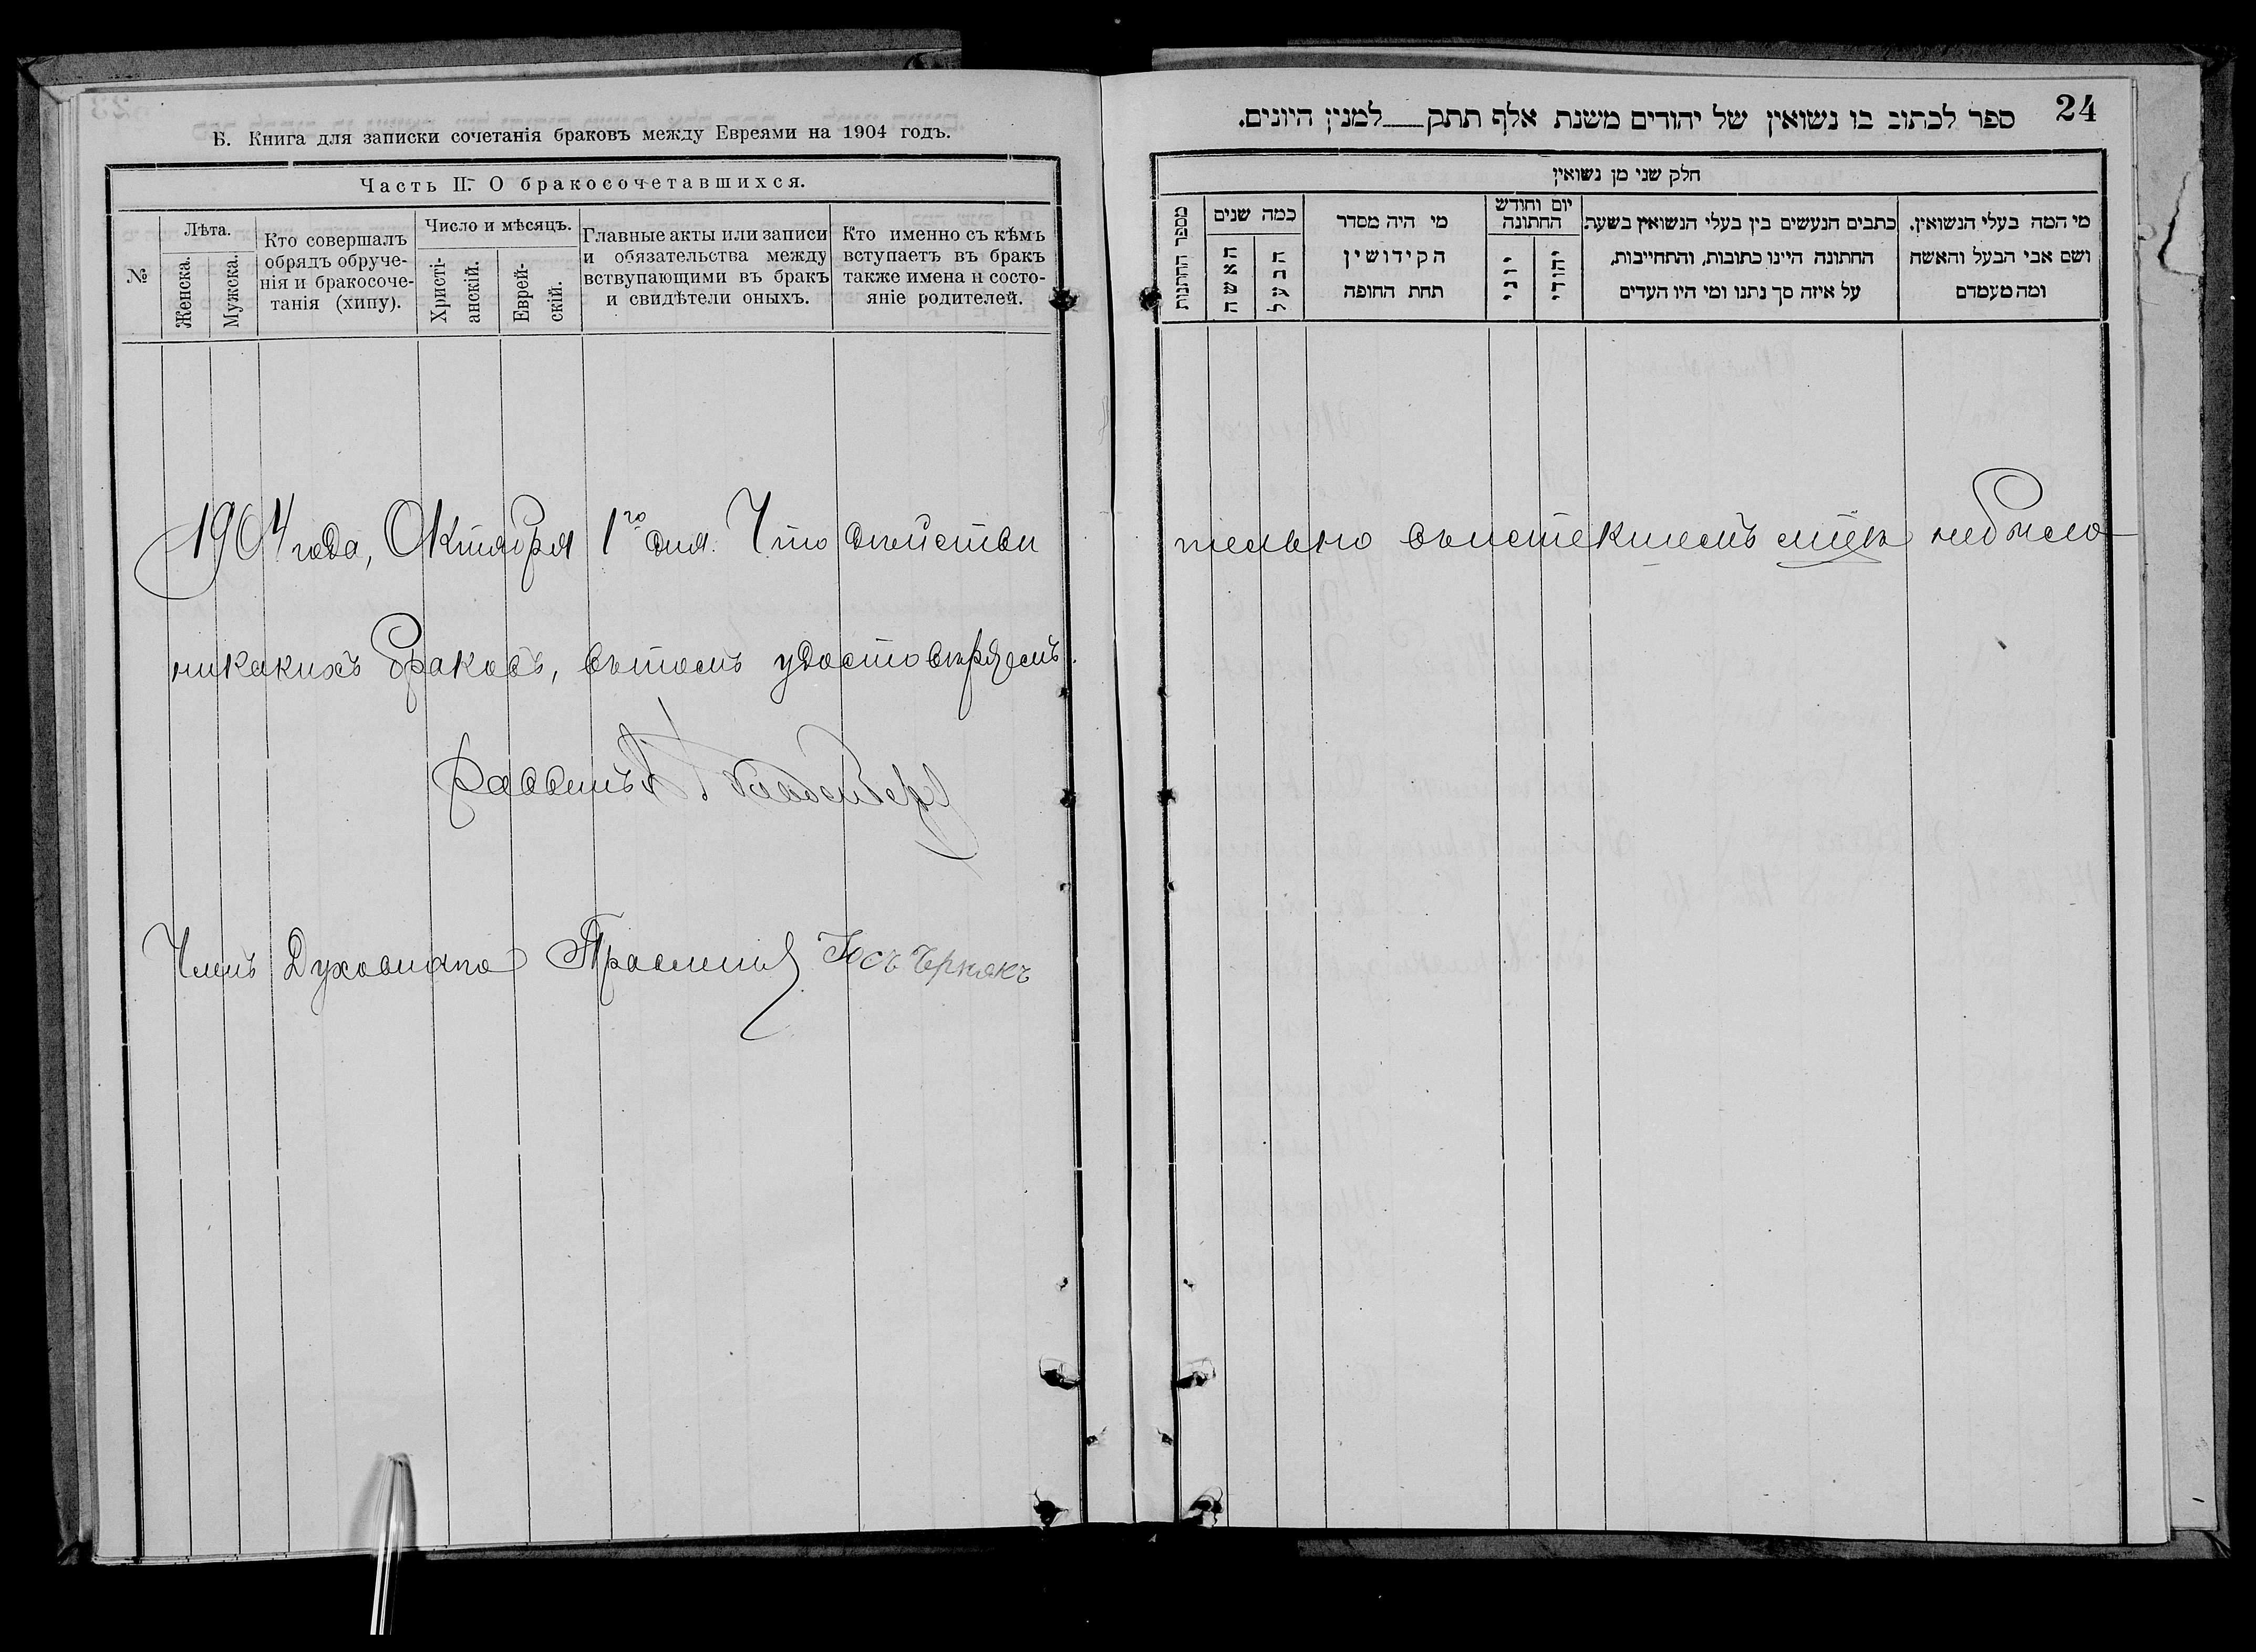 Б. Книга для записки сочетанія браковъ между Евреями на 1904 годъ.
Часть II. О бракосочетавшихся.
№
Лѣта.
Женска.
Мужска.
Кто совершалъ
обрядъ обруче-
нія и бракосоче-
танія (хипу).
Число и мѣсяцъ.
Христі-
анскій.
Еврей-
скій.
Главные акты или записи
и обязательства между
вствупающими въ бракъ
и свидѣтели оныхъ.
Кто именно съ кѣмъ
вступаетъ въ бракъ
также имена и состо-
яніе родителей.
24
ספר לכתוב בו נשואין של יהודים משנת אלף תתק___למנין היונים.
חלק שני מן נשואין
מספר החתונות
כמה שנים
האשה
הבעל
מי היה מסדר
הקידושין
תחת החופה
יום וחודש
החתונה
יוני
יהודי
כתבים הנעשים בין בעלי הנשואין בשעת
החתונה היינו כתובות, והתחייבות,
על איזה סך נתנו ומי היו העדים
מי המה בעלי הנשואין.
ושם אבי הבעל והאשה
ומה מעמדם
1904 года, Октября 1го дня. Что дѣйстви
тельно въ истекшемъ м-цѣ не было
никакихъ браковъ, въ томъ удостовѣряемъ.
Раввинъ
Членъ Духовнаго Правленія Іосъ Чернякъ